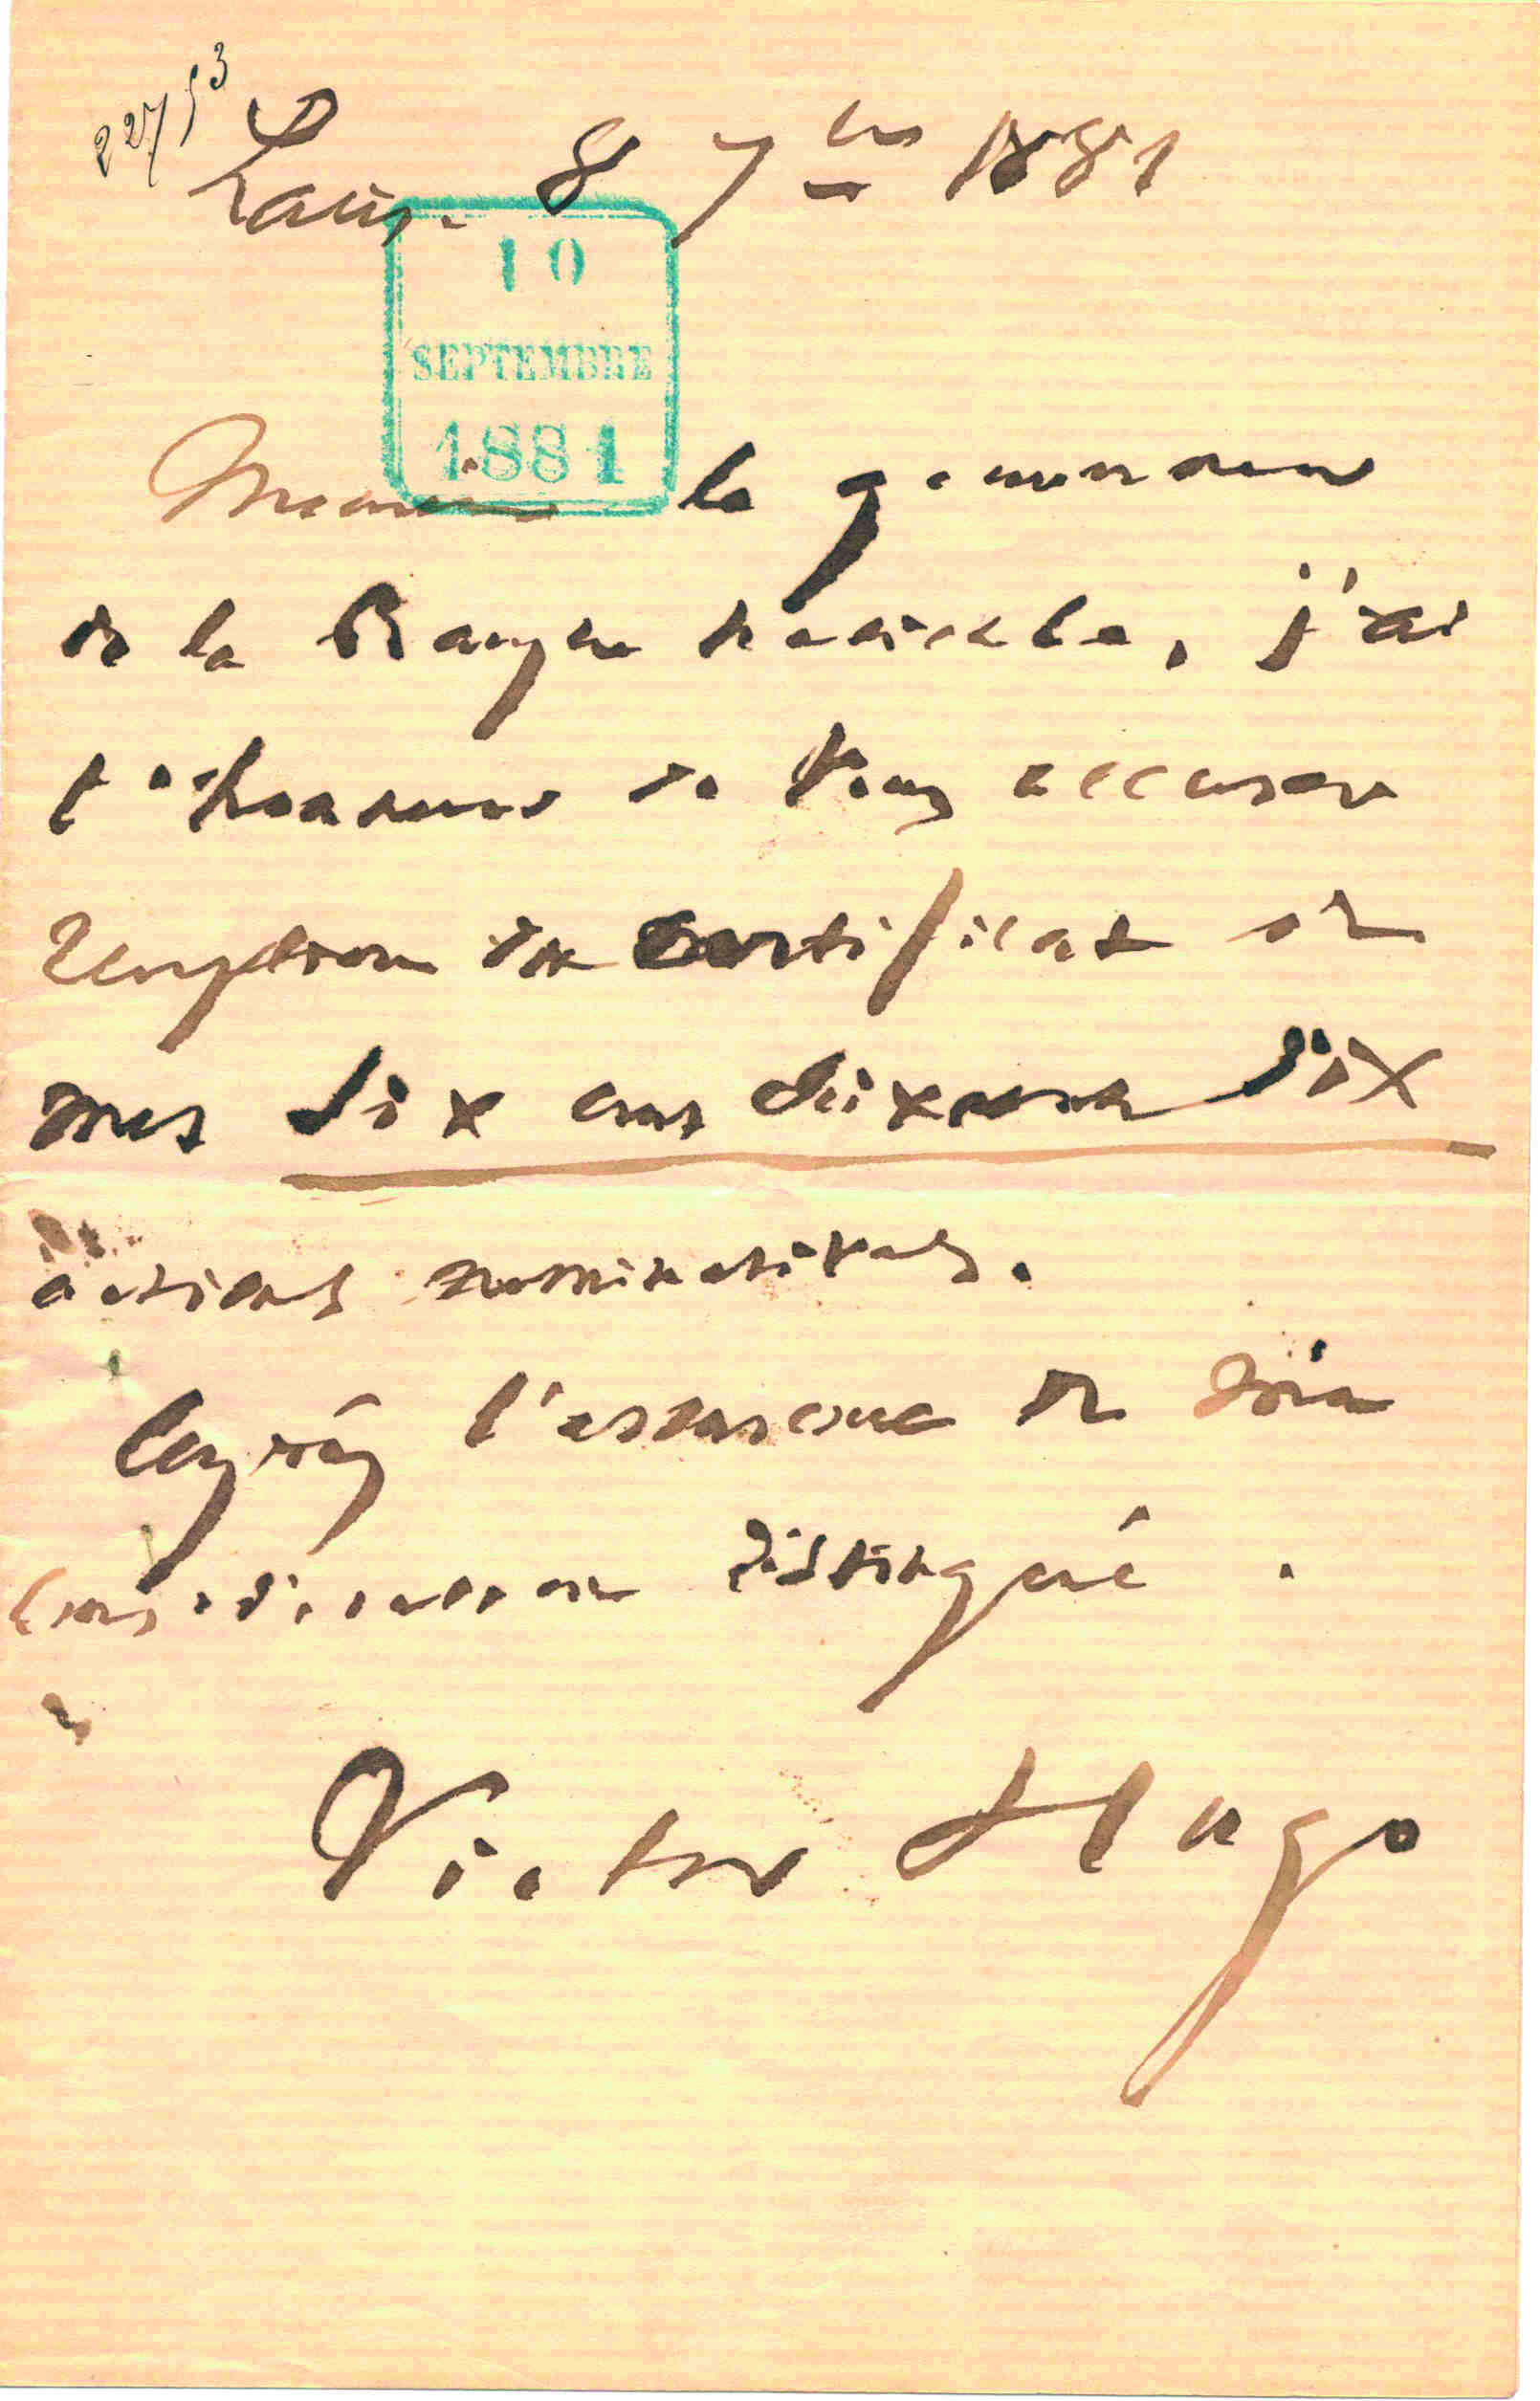 22753
Paris. 8 7bre 1881
10
SEPTEMBRE
1881
Monsieur le gouverneur
de la Banque nationale, j'ai
l'honneur de vous accuser
réception du certificat de
mes dix
actions nominatives.
l'assurance de ma
considération distinguée.
Victor Hugo